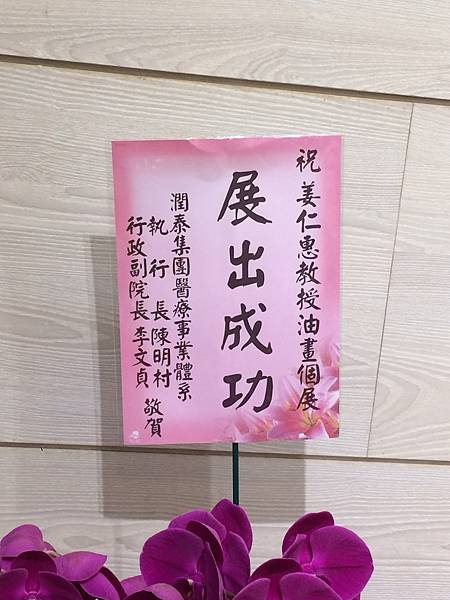 祝 姜仁惠教授油畫個展
展出成功
潤泰集團醫療事業體系
執行長陳明村
行政副院長李文貞
敬賀